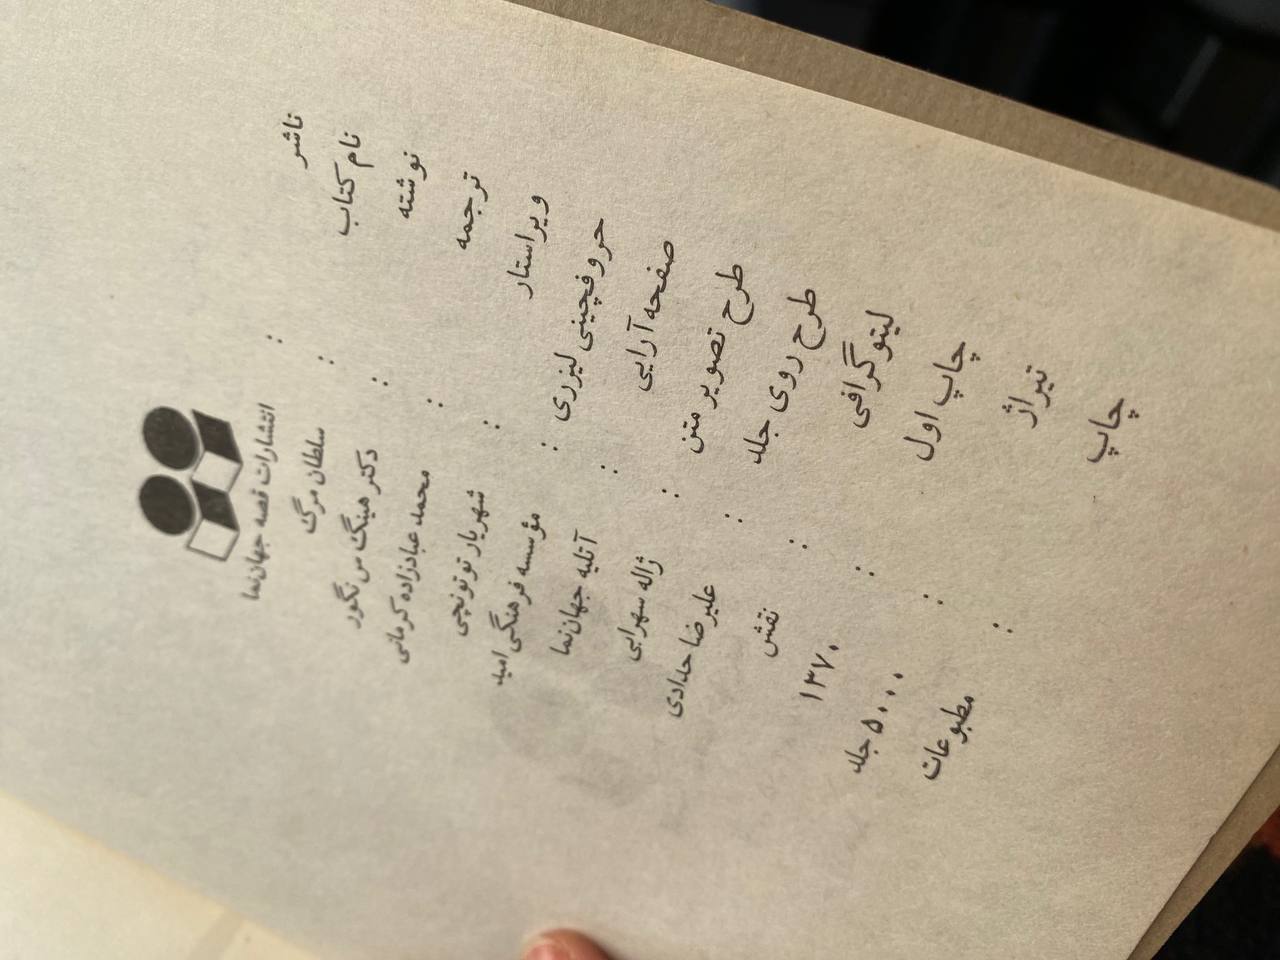 ناشر : انتشارات قصه جهان‌نما
نام کتاب : سلطان مرگ
نوشته : دکتر هینگ س نگور
ترجمه : محمد عبادزاده کرمانی
ویراستار : شهریار توتونچی
حروفچینی لیزری : مؤسسه فرهنگی امید
صفحه آرایی : آتلیه جهان‌نما
طرح تصویر متن : ژاله سهرابی
طرح روی جلد : علیرضا حدادی
لیتوگرافی : نقش
چاپ اول : ۱۳۷۰
تیراژ : ۵۰۰۰ جلد
چاپ : مطبوعات